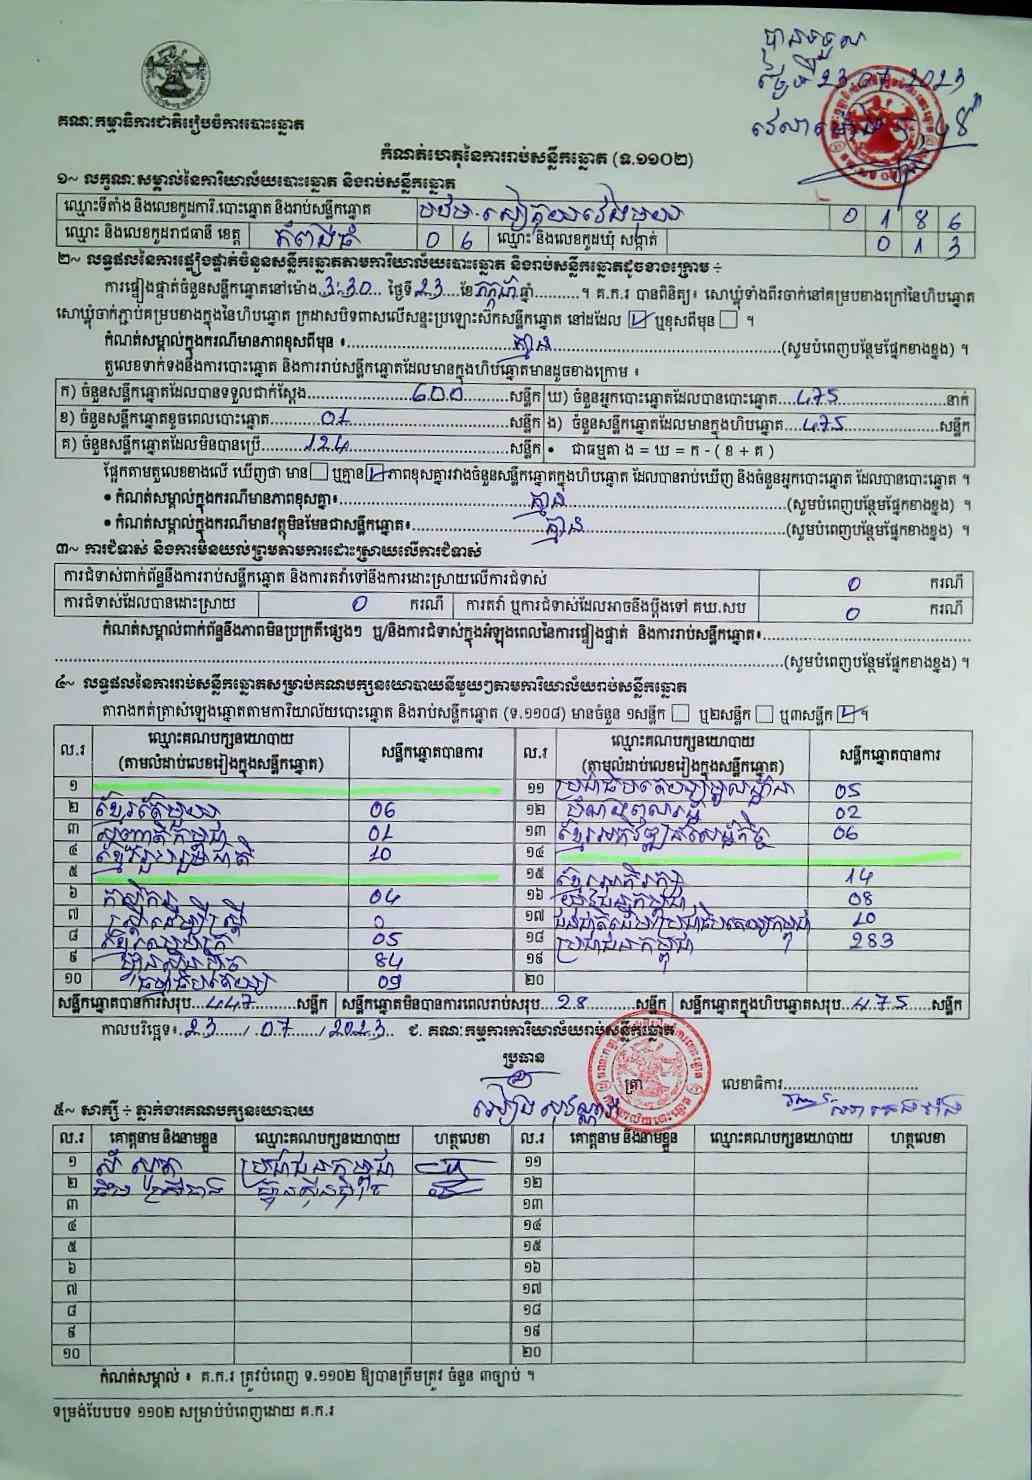 បានទទួល
ថ្ងៃទី 23.07.2023
គណៈកម្មាធិការជាតិរៀបចំការបោះឆ្នោត
កំណត់ហេតុនៃការរាប់សន្លឹកឆ្នោត (ទ.១១០២)
១~ លក្ខណៈសម្គាល់នៃការិយាល័យបោះឆ្នោត និងរាប់សន្លឹកឆ្នោត
ឈ្មោះទីតាំង និងលេខកូដការិ.បោះឆ្នោត និងរាប់សន្លឹកឆ្នោត 0 1 8 6
ឈ្មោះ និងលេខកូដរាជធានី ខេត្ត កំពង់ធំ 0 6 ឈ្មោះ និងលេខកូដឃុំ សង្កាត់ 0 1 3
២~ លទ្ធផលនៃការផ្ទៀងផ្ទាត់ចំនួនសន្លឹកឆ្នោតតាមការិយាល័យបោះឆ្នោត និងរាប់សន្លឹកឆ្នោតដូចខាងក្រោម ÷
ការផ្ទៀងផ្ទាត់ចំនួនសន្លឹកឆ្នោតនៅម៉ោង 3:30 ថ្ងៃទី 23 ខែ កក្កដា ឆ្នាំ..........។ គ.ក.រ បានពិនិត្យ៖ សោឃ្លុំទាំងពីរចាក់នៅគម្របខាងក្រៅនៃហិបឆ្នោត
សោឃ្លុំចាក់ភ្ជាប់គម្របខាងក្នុងនៃហិបឆ្នោត ក្រដាសបិទពាសលើសន្ទះប្រឡោះស៊កសន្លឹកឆ្នោត នៅដដែល ☑ ឬខុសពីមុន ☐ ។
កំណត់សម្គាល់ក្នុងករណីមានភាពខុសពីមុន ៖ គ្មាន (សូមបំពេញបន្ថែមផ្នែកខាងខ្នង) ។
តួលេខទាក់ទងនឹងការបោះឆ្នោត និងការរាប់សន្លឹកឆ្នោតដែលមានក្នុងហិបឆ្នោតមានដូចខាងក្រោម ៖
ក) ចំនួនសន្លឹកឆ្នោតដែលបានទទួលជាក់ស្តែង 600 សន្លឹក ឃ) ចំនួនអ្នកបោះឆ្នោតដែលបានបោះឆ្នោត 475 នាក់
ខ) ចំនួនសន្លឹកឆ្នោតខូចពេលបោះឆ្នោត 01 សន្លឹក ង) ចំនួនសន្លឹកឆ្នោតដែលមានក្នុងហិបឆ្នោត 475 សន្លឹក
គ) ចំនួនសន្លឹកឆ្នោតដែលមិនបានប្រើ 124 សន្លឹក • ជាធម្មតា ង = ឃ = ក - ( ខ + គ )
ផ្អែកតាមតួលេខខាងលើ ឃើញថា មាន ☐ ឬគ្មាន ☑ ភាពខុសគ្នារវាងចំនួនសន្លឹកឆ្នោតក្នុងហិបឆ្នោត ដែលបានរាប់ឃើញ និងចំនួនអ្នកបោះឆ្នោត ដែលបានបោះឆ្នោត ។
• កំណត់សម្គាល់ក្នុងករណីមានភាពខុសគ្នា៖ គ្មាន (សូមបំពេញបន្ថែមផ្នែកខាងខ្នង) ។
• កំណត់សម្គាល់ក្នុងករណីមានវត្ថុមិនមែនជាសន្លឹកឆ្នោត៖ គ្មាន (សូមបំពេញបន្ថែមផ្នែកខាងខ្នង) ។
៣~ ការជំទាស់ និងការមិនយល់ព្រមតាមការដោះស្រាយលើការជំទាស់
ការជំទាស់ពាក់ព័ន្ធនឹងការរាប់សន្លឹកឆ្នោត និងការតវ៉ាទៅនឹងការដោះស្រាយលើការជំទាស់ 0 ករណី
ការជំទាស់ដែលបានដោះស្រាយ 0 ករណី ការតវ៉ា ឬការជំទាស់ដែលអាចនឹងប្តឹងទៅ គឃ.សប 0 ករណី
កំណត់សម្គាល់ពាក់ព័ន្ធនឹងភាពមិនប្រក្រតីផ្សេងៗ ឬ/និងការជំទាស់ក្នុងអំឡុងពេលនៃការផ្ទៀងផ្ទាត់ និងការរាប់សន្លឹកឆ្នោត៖
(សូមបំពេញបន្ថែមផ្នែកខាងខ្នង) ។
៤~ លទ្ធផលនៃការរាប់សន្លឹកឆ្នោតសម្រាប់គណបក្សនយោបាយនីមួយៗតាមការិយាល័យរាប់សន្លឹកឆ្នោត
តារាងកត់ត្រាសំឡេងឆ្នោតតាមការិយាល័យបោះឆ្នោត និងរាប់សន្លឹកឆ្នោត (ទ.១១០៨) មានចំនួន ១សន្លឹក ☐ ឬ២សន្លឹក ☐ ឬ៣សន្លឹក ☑ ។
ល.រ ឈ្មោះគណបក្សនយោបាយ (តាមលំដាប់លេខរៀងក្នុងសន្លឹកឆ្នោត) សន្លឹកឆ្នោតបានការ ល.រ ឈ្មោះគណបក្សនយោបាយ (តាមលំដាប់លេខរៀងក្នុងសន្លឹកឆ្នោត) សន្លឹកឆ្នោតបានការ
១ ១១ 05
២ ខ្មែរតែមួយ 06 ១២ 02
៣ សញ្ជាតិកម្ពុជា 01 ១៣ ខ្មែរអភិវឌ្ឍន៍សេដ្ឋកិច្ច 06
៤ ខ្មែររួបរួមជាតិ 10 ១៤
៥ ១៥ 14
៦ កសិករ 04 ១៦ យុវជនកម្ពុជា 08
៧ ស្ត្រីដើម្បីស្ត្រី 0 ១៧ ជនជាតិដើមប្រជាធិបតេយ្យកម្ពុជា 10
៨ 05 ១៨ ប្រជាជនកម្ពុជា 283
៩ ហ្វ៊ុនស៊ិនប៉ិច 84 ១៩
១០ ធម្មាធិបតេយ្យ 09 ២០
សន្លឹកឆ្នោតបានការសរុប 447 សន្លឹក សន្លឹកឆ្នោតមិនបានការពេលរាប់សរុប 28 សន្លឹក សន្លឹកឆ្នោតក្នុងហិបឆ្នោតសរុប 475 សន្លឹក
កាលបរិច្ឆេទ៖ 23 / 07 / 2023 ជ. គណៈកម្មការការិយាល័យរាប់សន្លឹកឆ្នោត
ប្រធាន
ត្រា លេខាធិការ
៥~ សាក្សី ÷ ភ្នាក់ងារគណបក្សនយោបាយ
ល.រ គោត្តនាម និងនាមខ្លួន ឈ្មោះគណបក្សនយោបាយ ហត្ថលេខា ល.រ គោត្តនាម និងនាមខ្លួន ឈ្មោះគណបក្សនយោបាយ ហត្ថលេខា
១ ប្រជាជនកម្ពុជា ១១
២ ហ្វ៊ុនស៊ិនប៉ិច ១២
៣ ១៣
៤ ១៤
៥ ១៥
៦ ១៦
៧ ១៧
៨ ១៨
៩ ១៩
១០ ២០
កំណត់សម្គាល់ ៖ គ.ក.រ ត្រូវបំពេញ ទ.១១០២ ឱ្យបានត្រឹមត្រូវ ចំនួន ៣ច្បាប់ ។
ទម្រង់បែបបទ ១១០២ សម្រាប់បំពេញដោយ គ.ក.រ